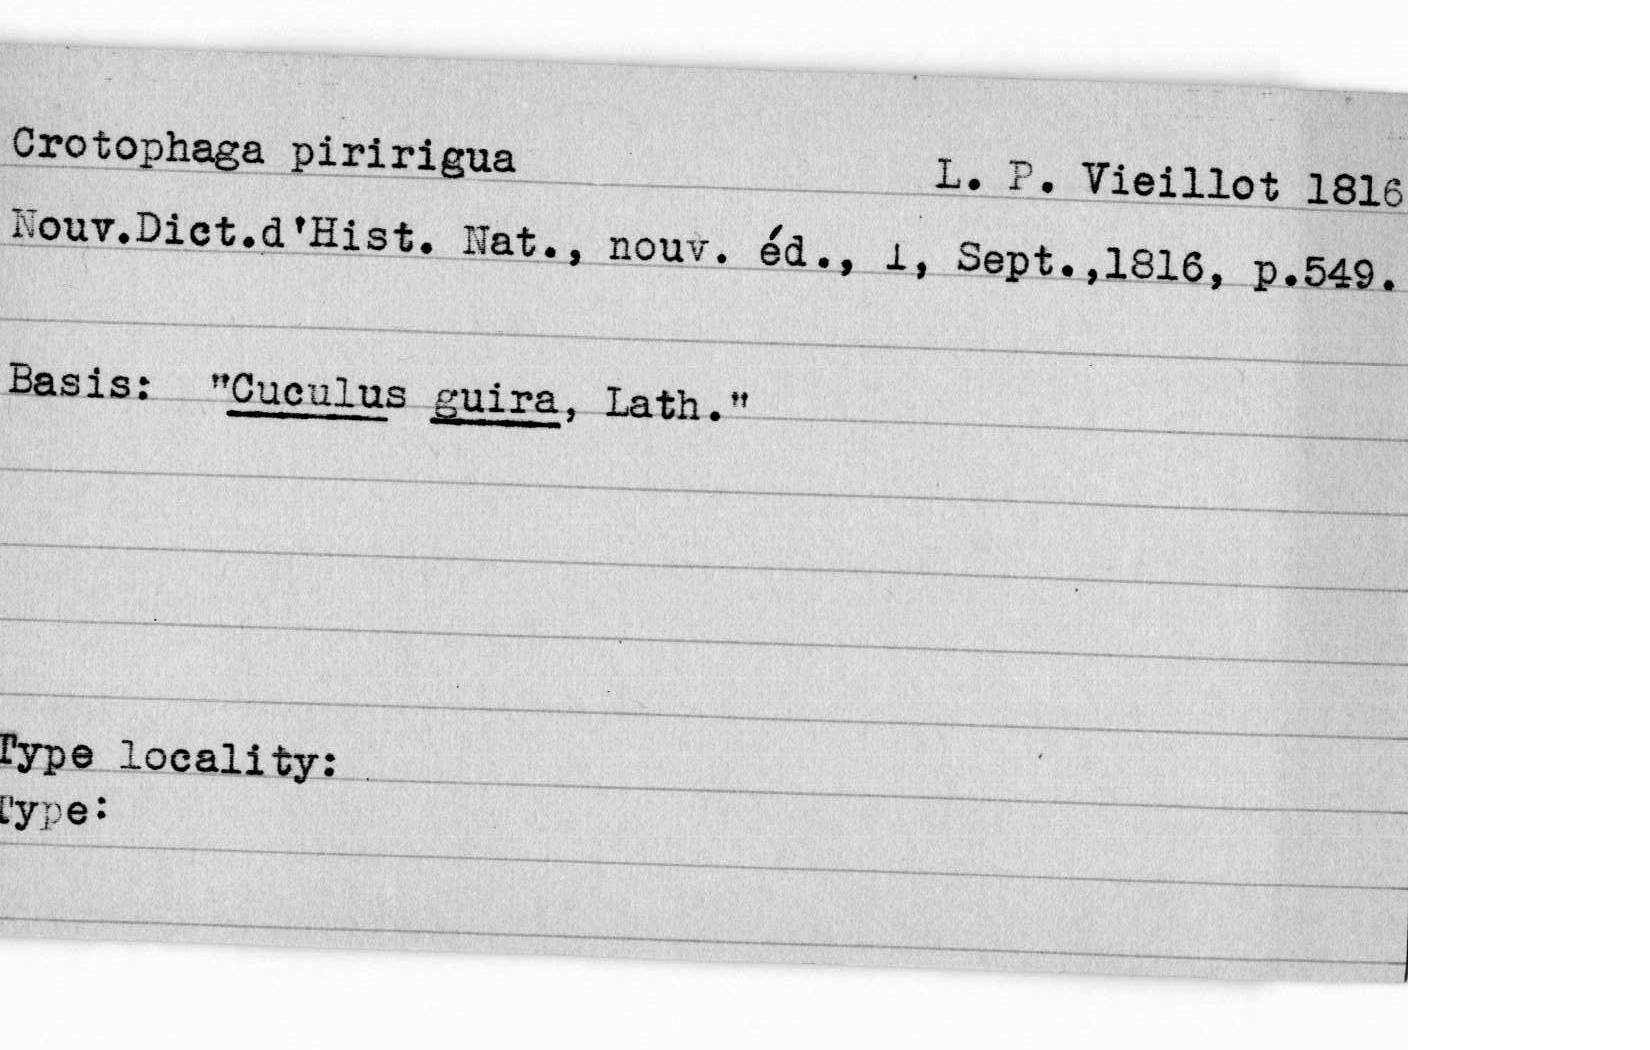 Crotophaga piririgua L. P. Vieillot 1816
Nouv.Dict.d'Hist. Nat., nouv. éd., 1, Sept.,1816, p.549.
Basis: "Cuculus guira, Lath."
Type locality:
Type: